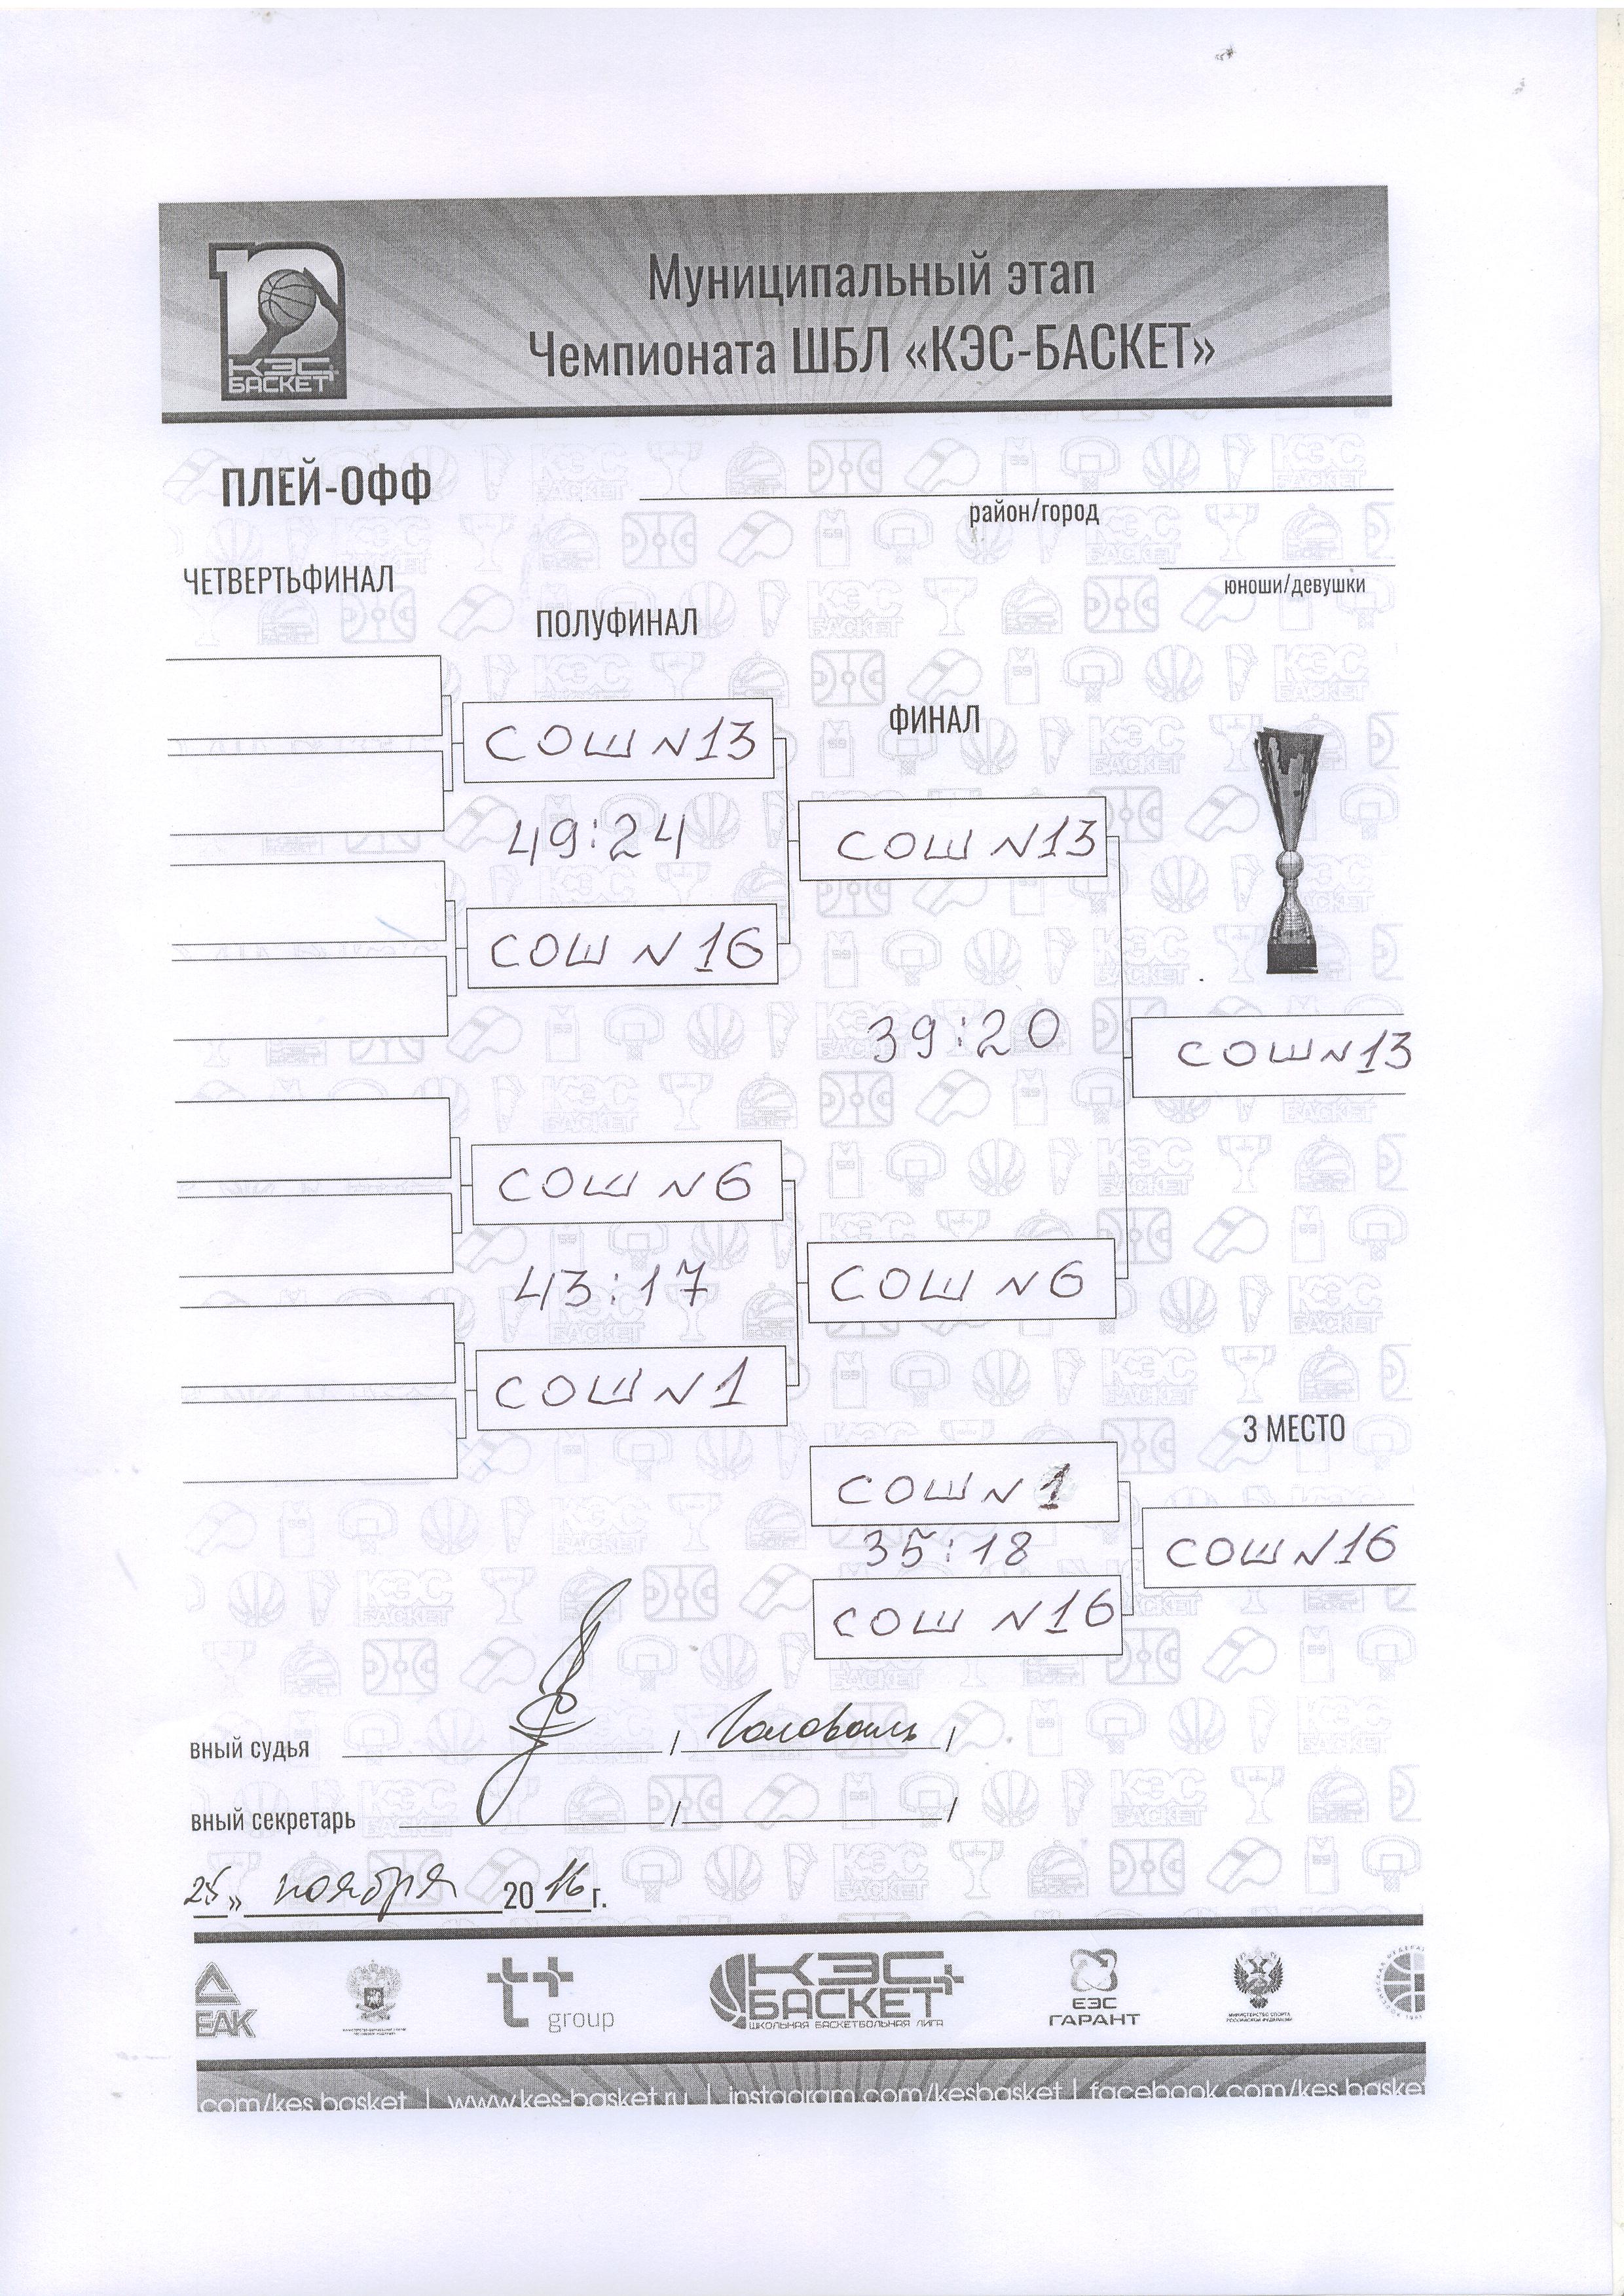 КЭС
БАСКЕТ
Муниципальный этап
Чемпионата ШБЛ «КЭС-БАСКЕТ»
ПЛЕЙ-ОФФ
район/город
юноши/девушки
ЧЕТВЕРТЬФИНАЛ
ПОЛУФИНАЛ
ФИНАЛ
СОШ N13
49:24
СОШ N13
СОШ N 16
39:20
СОШ N 13
СОШ N 6
43:17
СОШ N 6
СОШ N 1
3 МЕСТО
СОШ N 1
35:18
СОШ N 16
СОШ N 16
вный судья / /
вный секретарь / /
25» ноября 2016г.
ЕАК
t++
group
КЭС
БАСКЕТ
ШКОЛЬНАЯ БАСКЕТБОЛЬНАЯ ЛИГА
ЕЭС
ГАРАНТ
МИНИСТЕРСТВО СПОРТА
РОССИЙСКОЙ ФЕДЕРАЦИИ
com/kes.basket | www.kes-basket.ru | instagram.com/kesbasket | facebook.com/kes.basket